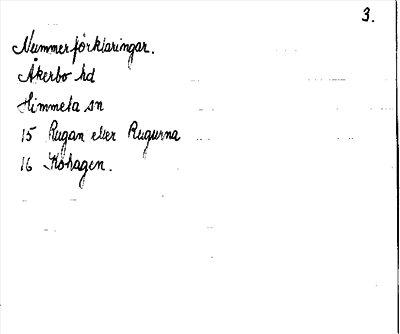 3.
Nummerförklaringar.
Åkerbo hd
Himmeta sn
15 Rugan eller Rugurna
16 Kohagen.